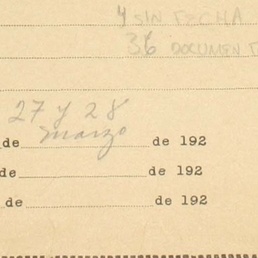 4 SIN FECHA
36 DOCUMENT
27 y 28
de marzo de 192
de de 192
de de 192